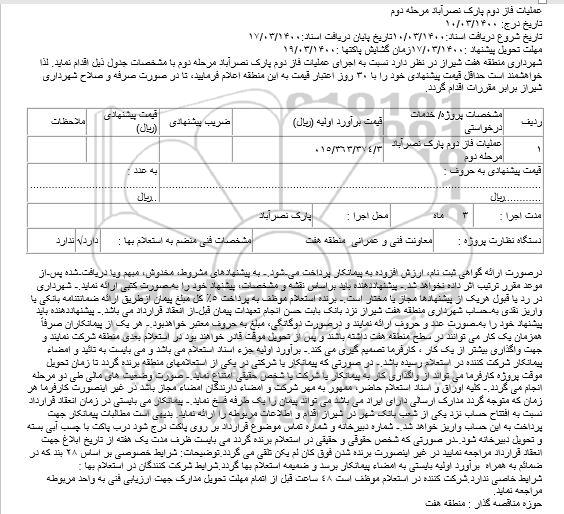 عملیات فاز دوم پارک نصرآباد مرحله دوم
تاریخ درج: ۱۰/۰۳/۱۴۰۰
تاریخ شروع دریافت اسناد:۱۰/۰۳/۱۴۰۰تاریخ پایان دریافت اسناد:۱۷/۰۳/۱۴۰۰
مهلت تحویل پیشنهاد :۱۷/۰۳/۱۴۰۰زمان گشایش پاکتها :۱۹/۰۳/۱۴۰۰
شهرداری منطقه هفت شیراز در نظر دارد نسبت به اجرای عملیات فاز دوم پارک نصرآباد مرحله دوم با مشخصات جدول ذیل اقدام نماید. لذا
خواهشمند است حداقل قیمت پیشنهادی خود را با ۳۰ روز اعتبار قیمت به این منطقه اعلام فرمایید، تا در صورت صرفه و صلاح شهرداری
شیراز برابر مقررات اقدام گردد.
ردیف مشخصات پروژه/ خدمات درخواستی قیمت برآورد اولیه (ریال) ضریب پیشنهادی قیمت پیشنهادی (ریال) ملاحظات
۱ عملیات فاز دوم پارک نصرآباد مرحله دوم ۰۱۵/۳۶۳/۳۷۴/۳
قیمت پیشنهادی به حروف : به عدد :
............ریال ..ریال
مدت اجرا : ۳ ماه محل اجرا : پارک نصرآباد
دستگاه نظارت پروژه : معاونت فنی و عمرانی منطقه هفت مشخصات فنی منضم به استعلام بها : دارد√ ندارد
درصورت ارائه گواهی ثبت نام، ارزش افزوده به پیمانکار پرداخت می‌شود.ـ به پیشنهادهای مشروط، مخدوش، مبهم ویا دریافت‌شده پس‌از
موعد مقرر ترتیب اثر داده نخواهد شد.ـ پیشنهاددهنده باید براساس نقشه و مشخصات، پیشنهاد خود را به صورت کتبی ارائه نماید.ـ شهرداری
در رد یا قبول هریک از پیشنهادها مجاز یا مختار است.ـ برنده استعلام موظف به پرداخت ۵٪ کل مبلغ پیمان ازطریق ارائه ضمانتنامه بانکی یا
واریز نقدی به‌حساب شهرداری منطقه هفت شیراز نزد بانک بابت حسن انجام تعهدات پیمان قبل‌از انعقاد قرارداد می باشد.ـ پیشنهاددهنده باید
پیشنهاد خود را به‌صورت عدد و حروف ارائه نمایند و درصورت دوگانگی، مبلغ به حروف معتبر خواهدبود.ـ هر یک از پیمانکاران صرفاً
همزمان یک کار می توانند در سطح منطقه هفت داشته باشند و پس از تحویل موقت قادر خواهند بود در استعلام بعدی منطقه شرکت نمایند و
جهت واگذاری بیشتر از یک کار ، کارفرما تصمیم گیری می کند.ـ برآورد اولیه جزء اسناد استعلام می باشد و می بایست به تائید و امضاء
پیمانکار شرکت کننده در استعلام رسیده باشد.ـ در صورتی که پیمانکار یا شرکتی در یکی از استعلامهای منطقه برنده گردد تا زمان تحویل
موقت پروژه کارفرما می تواند از واگذاری کار به پیمانکار یا شرکت یا شخص حقیقی امتناع نماید.ـ صورت وضعیت های مالی طی دو مرحله
انجام می گردد.ـ کلیه اوراق و اسناد استعلام حاضر، ممهور به مهر شرکت و امضاء دارندگان امضاء مجاز باشد در غیر اینصورت کارفرما هر
زمان که متوجه گردد مدارک ارسالی دارای ایراد می باشد می تواند پیمان را یک طرفه فسخ نماید.ـ پیمانکار می بایستی در زمان انعقاد قرارداد
نسبت به افتتاح حساب نزد یکی از شعب بانک شهر در شیراز اقدام و اطلاعات مربوطه را ارائه نماید. بدیهی است مطالبات پیمانکار جهت
پرداخت به این حساب واریز خواهد شد.ـ شماره دبیرخانه و شماره تماس موضوع قرارداد بر روی پاکت درج شود درب پاکت با چسب آبی بسته
و تحویل دبیرخانه شود.ـدر صورتی که شخص حقوقی و حقیقی در استعلام برنده گردد می بایست ظرف مدت یک هفته از تاریخ ابلاغ جهت
انعقاد قرارداد مراجعه نمایید در غیر اینصورت برنده شدن فوق کان لم یکن تلقی می گردد.توضیحات: شرایط خصوصی بر اساس ۲۸ بند که در
ضمائم به همراه برآورد اولیه بایستی به امضاء پیمانکار برسد و ضمیمه استعلام بها گردد.شرایط شرکت کنندگان در استعلام بها :
شرایط خاصی ندارد.شرکت کننده در استعلام موظف است ۴۸ ساعت قبل از اتمام مهلت تحویل مدارک جهت ارزیابی فنی به واحد مربوطه
مراجعه نماید.
حوزه مناقصه گذار : منطقه هفت